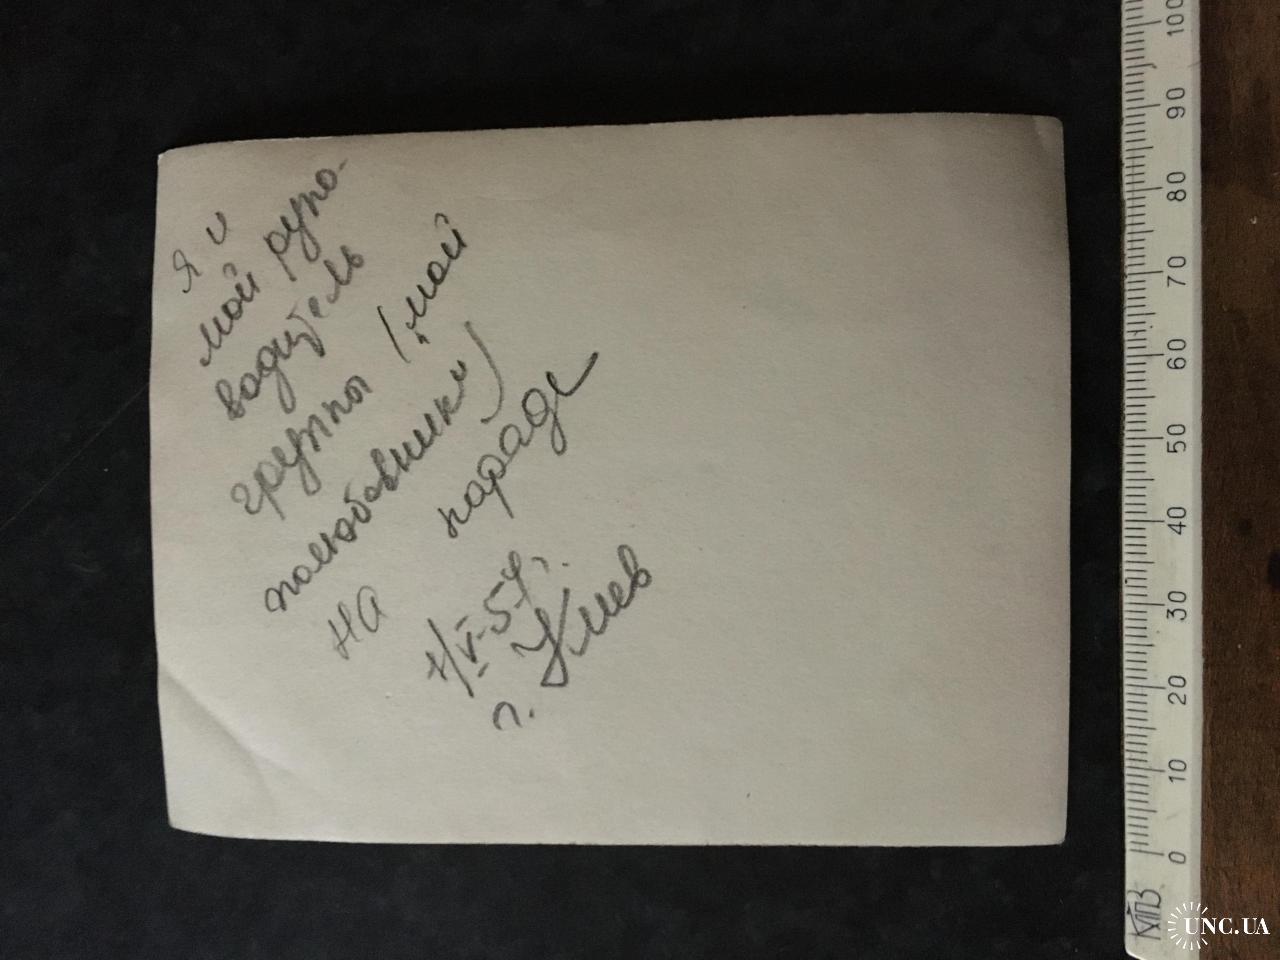 Я и
мой руко-
водитель
группы (мой
полюбовник)
на параде
1/V-57г.
г. Киев
0 10 20 30 40 50 60 70 80 90 100
UNC.UA